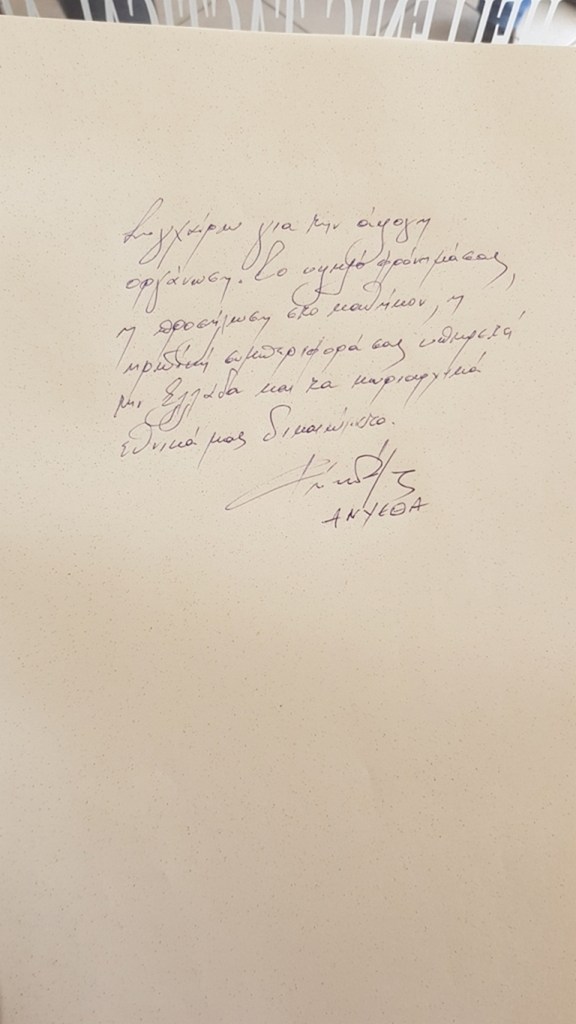 Συγχαίρω για την άψογη
οργάνωση. Το υψηλό φρόνημά σας,
η προσήλωση στο καθήκον, η
ηρωϊκή συμπεριφορά σας υπηρετεί
την Ελλάδα και τα κυριαρχικά
εθνικά μας δικαιώματα.
ΑΝΥΕΘΑ